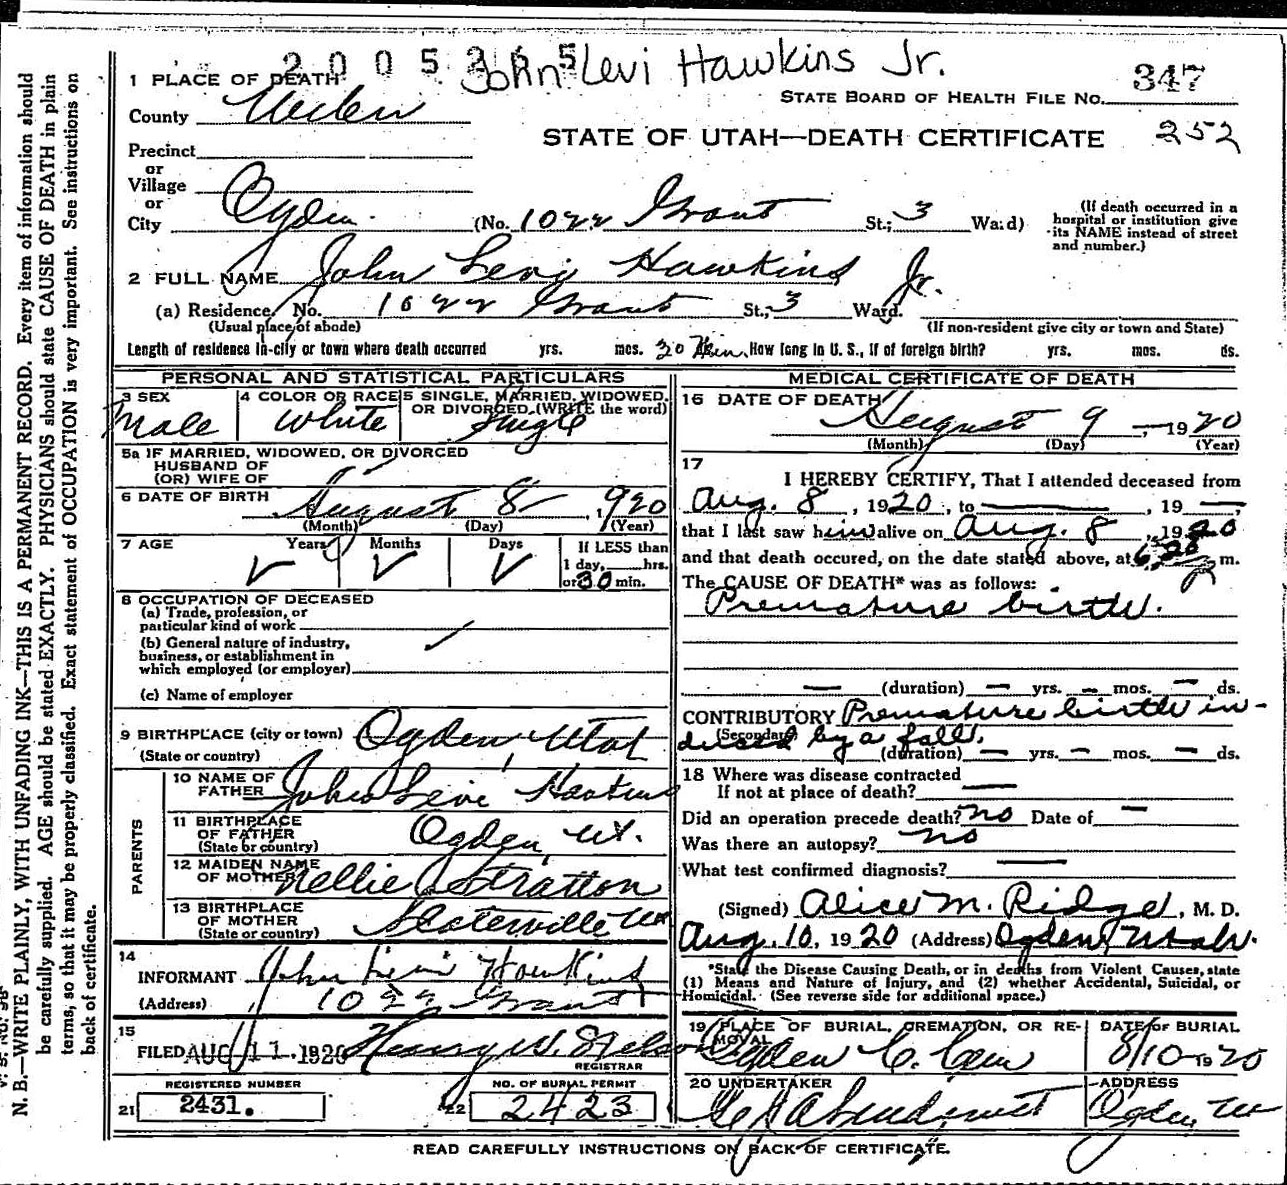 2005345
John Levi Hawkins Jr.
1 PLACE OF DEATH
STATE BOARD OF HEALTH FILE No. 347
County Weber
STATE OF UTAH—DEATH CERTIFICATE 252
Precinct
or
Village
or
City Ogden (No. 1022 Grant St; 3 Ward)
(If death occurred in a
hospital or institution give
its NAME instead of street
and number.)
2 FULL NAME John Levi Hawkins Jr.
(a) Residence No. 1022 Grant St; 3 Ward.
(Usual place of abode) (If non-resident give city or town and State)
Length of residence in city or town where death occurred yrs. mos. 30 Min. How long in U. S., if of foreign birth? yrs. mos. ds.
PERSONAL AND STATISTICAL PARTICULARS
3 SEX Male
4 COLOR OR RACE White
5 SINGLE, MARRIED, WIDOWED,
OR DIVORCED (WRITE the word) Single
5a IF MARRIED, WIDOWED, OR DIVORCED
HUSBAND OF
(OR) WIFE OF
6 DATE OF BIRTH August 8 1920
(Month) (Day) (Year)
7 AGE Years Months Days
If LESS than
1 day, hrs.
or 30 min.
8 OCCUPATION OF DECEASED
(a) Trade, profession, or
particular kind of work
(b) General nature of industry,
business, or establishment in
which employed (or employer)
(c) Name of employer
9 BIRTHPLACE (city or town) Ogden, Utah
(State or country)
PARENTS
10 NAME OF
FATHER John Levi Hawkins
11 BIRTHPLACE
OF FATHER Ogden, Ut.
(State or country)
12 MAIDEN NAME
OF MOTHER Nellie Stratton
13 BIRTHPLACE
OF MOTHER Slaterville Ut
(State or country)
14
INFORMANT John Levi Hawkins
(Address) 1022 Grant
15
FILED AUG 11 1920 Henry W. Nelson
REGISTRAR
REGISTERED NUMBER
21 2431.
NO. OF BURIAL PERMIT
22 2423
MEDICAL CERTIFICATE OF DEATH
16 DATE OF DEATH August 9 1920
(Month) (Day) (Year)
17
I HEREBY CERTIFY, That I attended deceased from
Aug. 8, 1920, to , 19
that I last saw him alive on Aug. 8, 1920
and that death occured, on the date stated above, at m.
The CAUSE OF DEATH* was as follows:
Premature birth.
(duration) yrs. mos. ds.
CONTRIBUTORY Premature birth in-
(Secondary) duced by a fall.
(duration) yrs. mos. ds.
18 Where was disease contracted
If not at place of death?
Did an operation precede death? no Date of
Was there an autopsy? no
What test confirmed diagnosis?
(Signed) Alice M. Ridge, M. D.
Aug. 10, 1920 (Address) Ogden, Utah.
*State the Disease Causing Death, or in deaths from Violent Causes, state
(1) Means and Nature of Injury, and (2) whether Accidental, Suicidal, or
Homicidal. (See reverse side for additional space.)
19 PLACE OF BURIAL, CREMATION, OR RE-
MOVAL Ogden C. Cem
DATE of BURIAL
8/10 1920
20 UNDERTAKER
ADDRESS
Ogden, Ut
READ CAREFULLY INSTRUCTIONS ON BACK OF CERTIFICATE.
N. B.—WRITE PLAINLY, WITH UNFADING INK—THIS IS A PERMANENT RECORD. Every item of information should
be carefully supplied. AGE should be stated EXACTLY. PHYSICIANS should state CAUSE OF DEATH in plain
terms, so that it may be properly classified. Exact statement of OCCUPATION is very important. See instructions on
back of certificate.